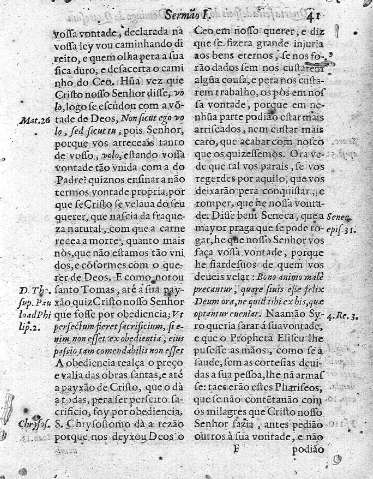 Sermão I.
41
vossa vontade, declarada na
vossa ley vou caminhando di
reito, e quem olha pera a sua
fica duro, e desacerta o cami
nho do Ceo. Hũa vez que
Cristo nosso Senhor disse, vo
lo, logo se escudou com a võ-
tade de Deos, Non sicut ego vo
Mat. 26
lo, sed sicut tu, pois, Senhor,
porque vos arreceais tanto
de vosso, volo, estando vossa
vontade tão unida com a do
Padre? quiz nos ensinar a não
termos vontade propria, por
que se Cristo se velaua do seu
querer, que nascia da fraque-
za natural, com que a carne
recea a morte, quanto mais
nòs, que não estamos tão vni
dos, e cõformes com o que-
rer de Deos. E como notou
santo Tomas, atè á sua pay-
D. Th.
sup. Pau
xão quiz Cristo nosso Senhor
que fosse por obediencia; Vt
lip. 2.
persectum fieret sacrificium, si e-
nim non esset ex obedientia, eius
passio tam comendabilis non esset
A obediencia realça o preço
e valia das obras santas, e atè
a payxão de Cristo, que o dà
a todas, pera ser perfeito sa-
crificio, foy por obediencia.
Chrysos.
S. Chrysostomo dà a rezão
porque nos deyxou Deos o
Ceo em nosso querer, e diz
que se fizera grande injuria
aos bens eternos, se nos fo-
rão dados sem nos custarem
algũa cousa, e pera nos custa-
rem trabalho, os pòs em nos
sa vontade, porque em ne-
nhũa parte podião estar mais
arriscados, nem custar mais
caro, que acabar com nosco
que os quizessemos. Ora ve-
de que tal vos parais, se vos
regerdes por aquillo, que vos
deixarão pera conquistar, e
romper, que he nossa vonta-
de. Disse bem Seneca, que a
Seneq.
mayor praga que se pode ro-
epis 31.
gar, he que nosso Senhor vos
faça vossa vontade, porque
he fiardes tudo de quem vos
deueis velar: Bono animo male
precantur, quare si vis esse felix
Deum ora, ne quid tibi ex his, que
optantur eueniat. Naamão Sy-
4. Re. 5.
ro queria sarar á sua vontade,
e que o Propheta Eliseu lhe
pusesse as mãos, como se a
saude, sem as cortesias deui-
das a sua pessoa, lhe nã armas
se: taes erão estes Phariseos,
que se não contẽtauão com
os milagres que Cristo nosso
Senhor fazia, antes pedião
outros à sua vontade, e não
F
podião